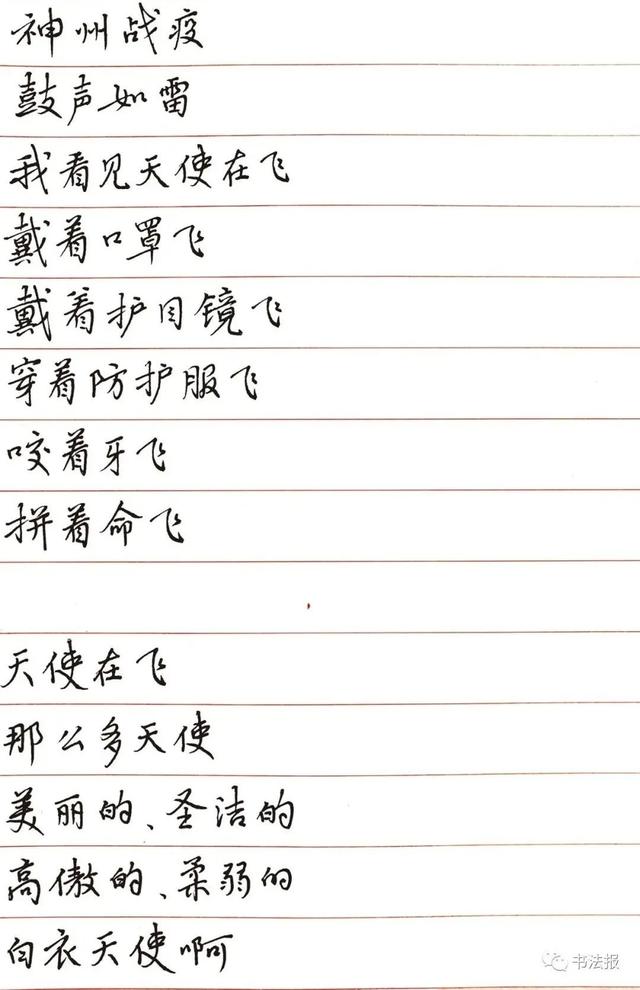 神州战疫
鼓声如雷
我看见天使在飞
戴着口罩飞
戴着护目镜飞
穿着防护服飞
咬着牙飞
拼着命飞
天使在飞
那么多天使
美丽的、圣洁的
高傲的、柔弱的
白衣天使啊
书法报